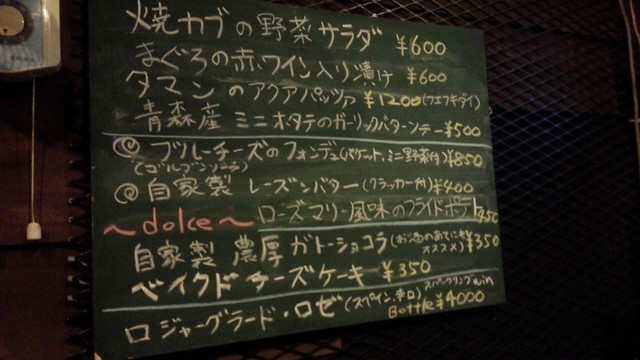 焼カブの野菜サラダ ¥600
まぐろの赤ワイン入り漬け ¥600
タマンのアクアパッツァ ¥1200(フエフキダイ)
青森産 ミニホタテのガーリックバターソテー ¥500
ブルーチーズのフォンデュ(バケット、ミニ野菜付) ¥850
(ゴルゴンゾーラ)
自家製 レーズンバター(クラッカー付) ¥400
ローズマリー風味のフライドポテト 450
～dolce～
自家製 濃厚 ガトーショコラ(お酒のあてにもオススメ) ¥350
ベイクドチーズケーキ ¥350
ロジャーグラード・ロゼ(スペイン、辛口) スパークリングwin
Bottle ¥4000